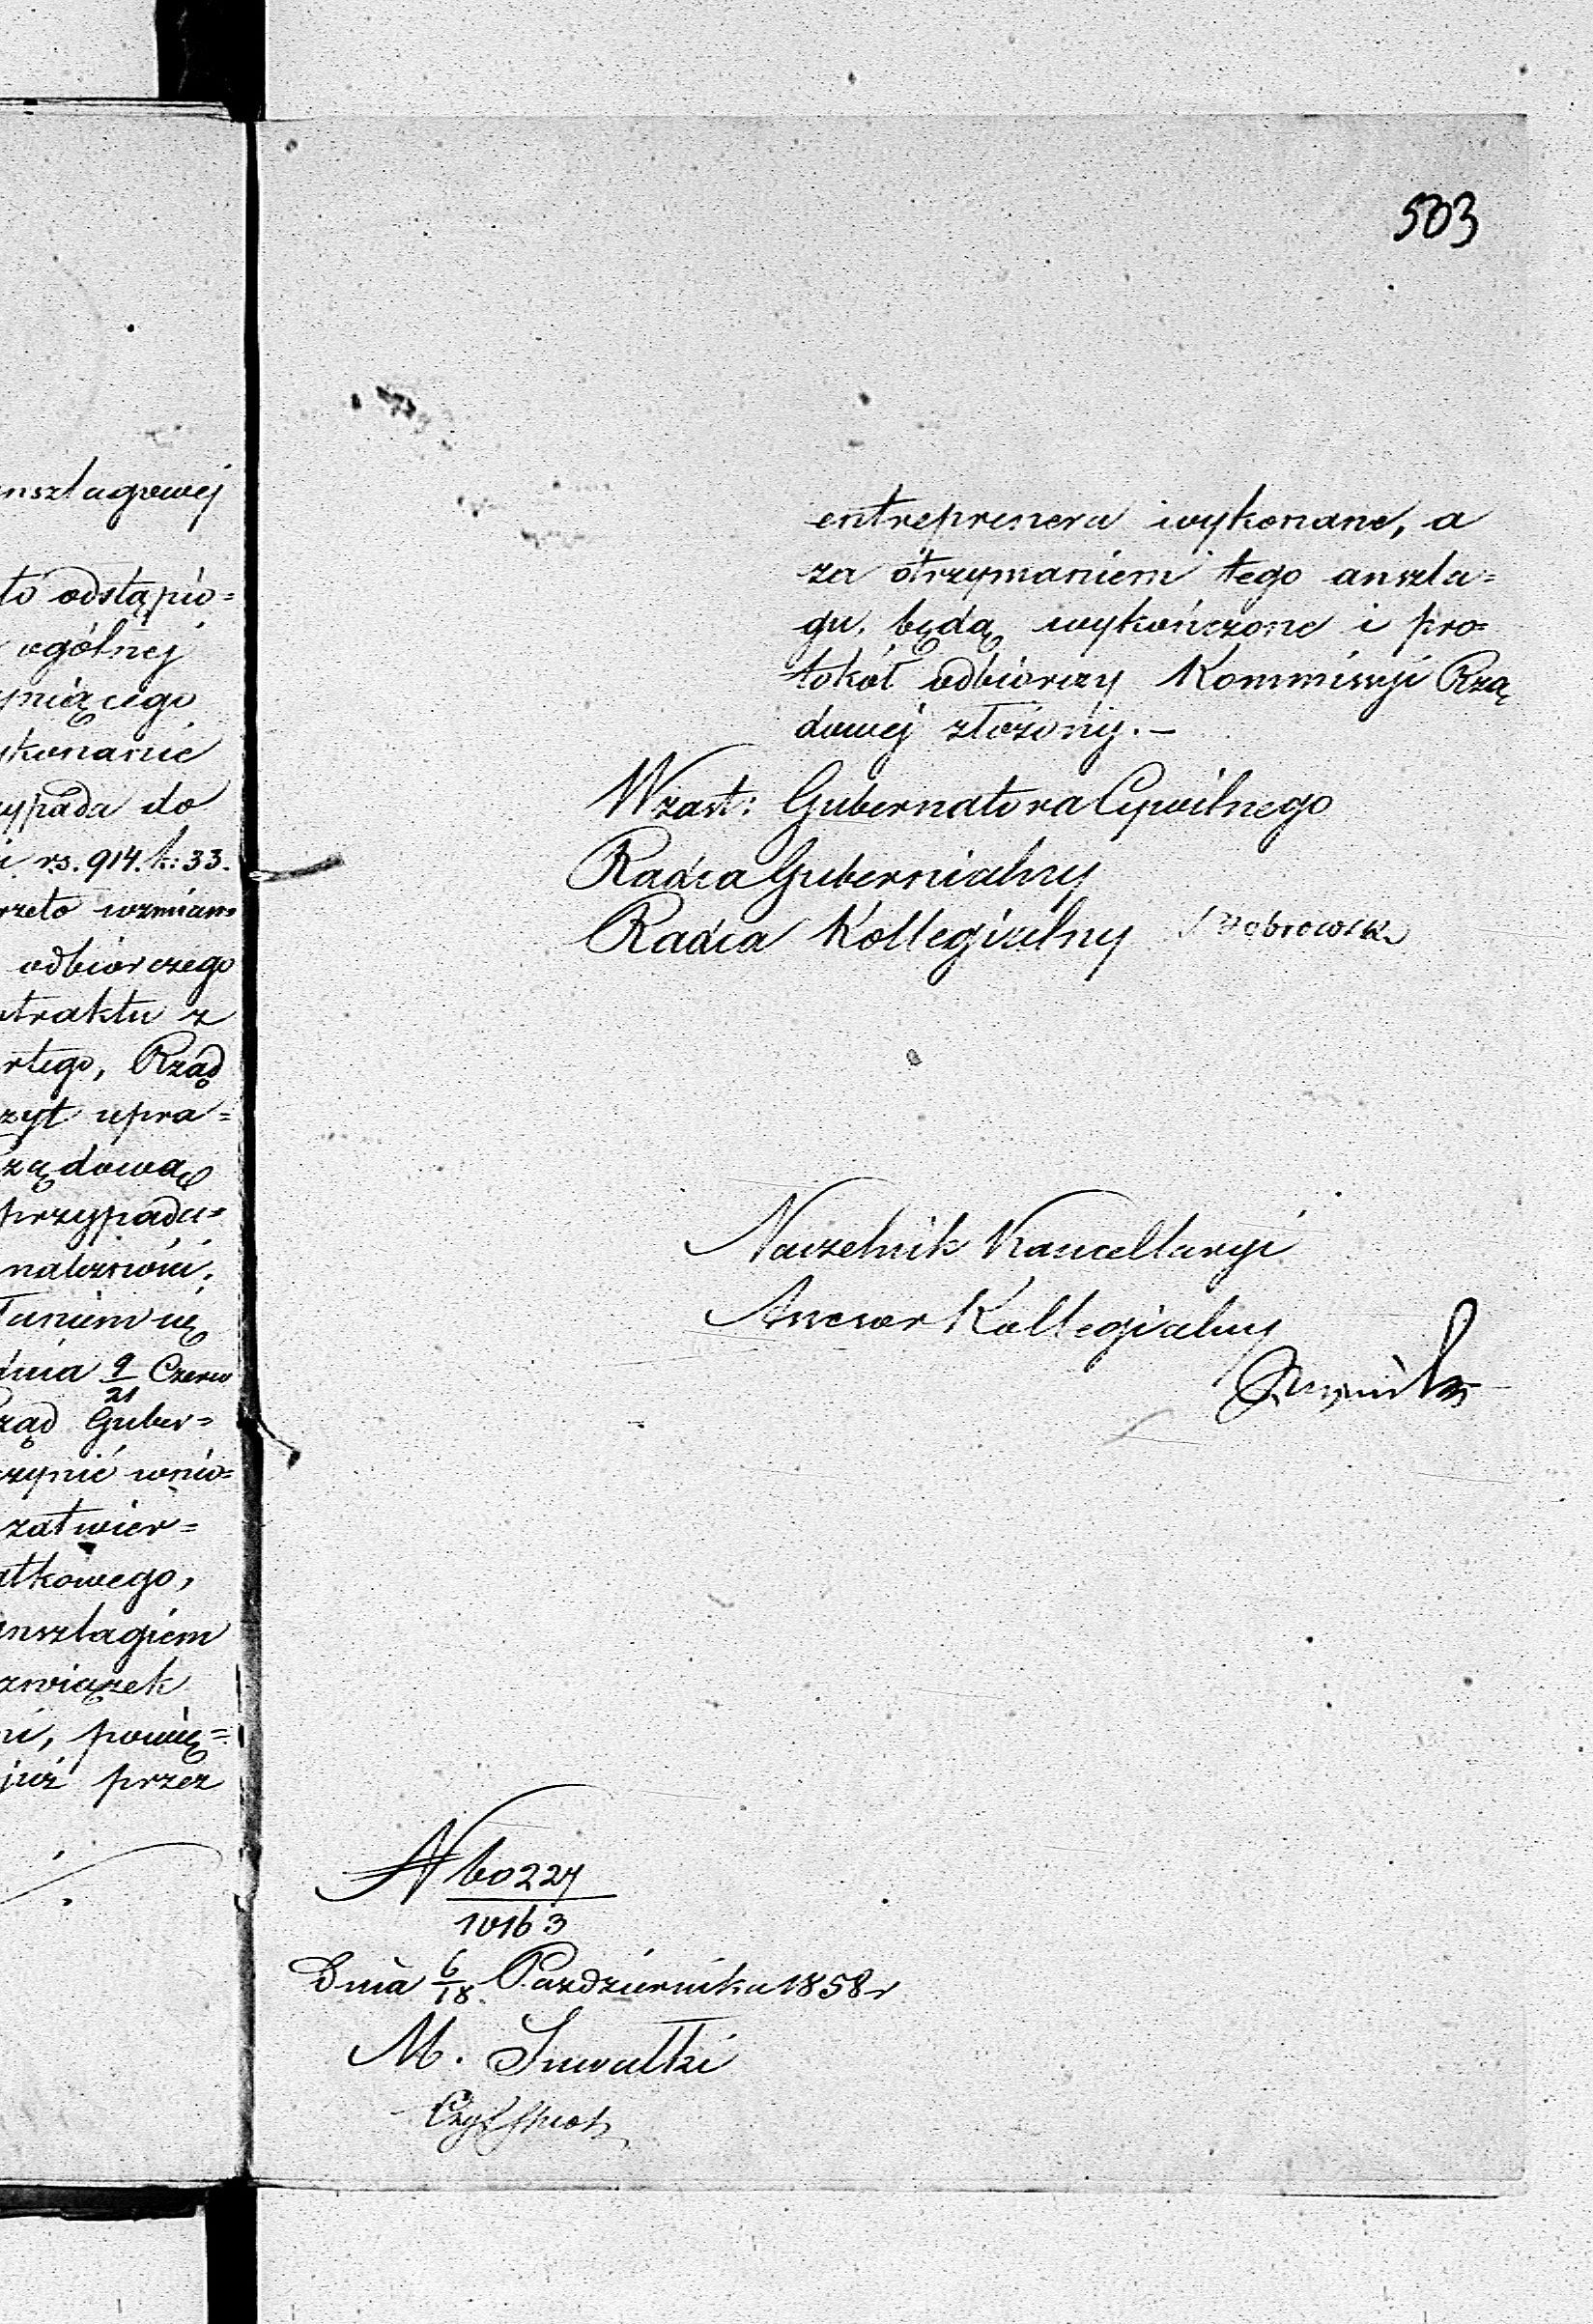 nsztagowej
to odstąpio=
ogólnej
yniącego
ykonanie
ypada do
i rs. 914. k: 33.
rzeto wzmian=
odbiorczego
ntraktu z
rtego, Rząd
zyt upra=
ządową
przypada=
należności,
łaniem się
dnia 9/21 Czerw
Rząd Guber=
zynić wnio=
zatwier=
atkowego,
anszlagiem
związek
ni, powię=
już przez
503
entreprenera wykonane, a
za otrzymaniem tego anszla=
gu, będą wykończone i pro=
tokół odbiorczy Kommissyi Rzą
dowej złożony.—
W zast: Gubernatora Cywilnego
Radca Gubernialny
Radca Kollegialny
Naczelnik Kancellaryi
Assesor Kollegialny
N 60227
10163
Dnia 6/18 Października 1858 r
M. Suwałki